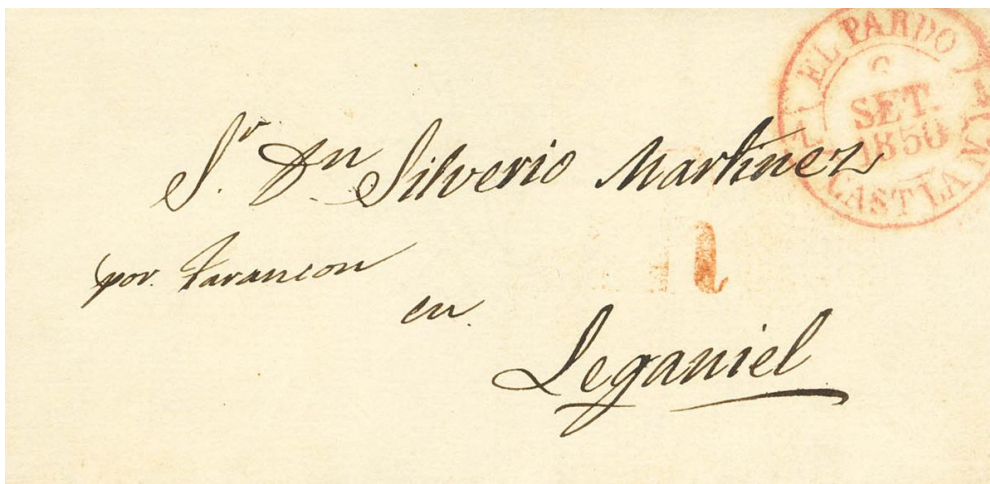 EL PARDO
SET.
1850
CAST LA N.
Sr. Dn Silverio Martinez
por. Tarancon
en.
Leganiel